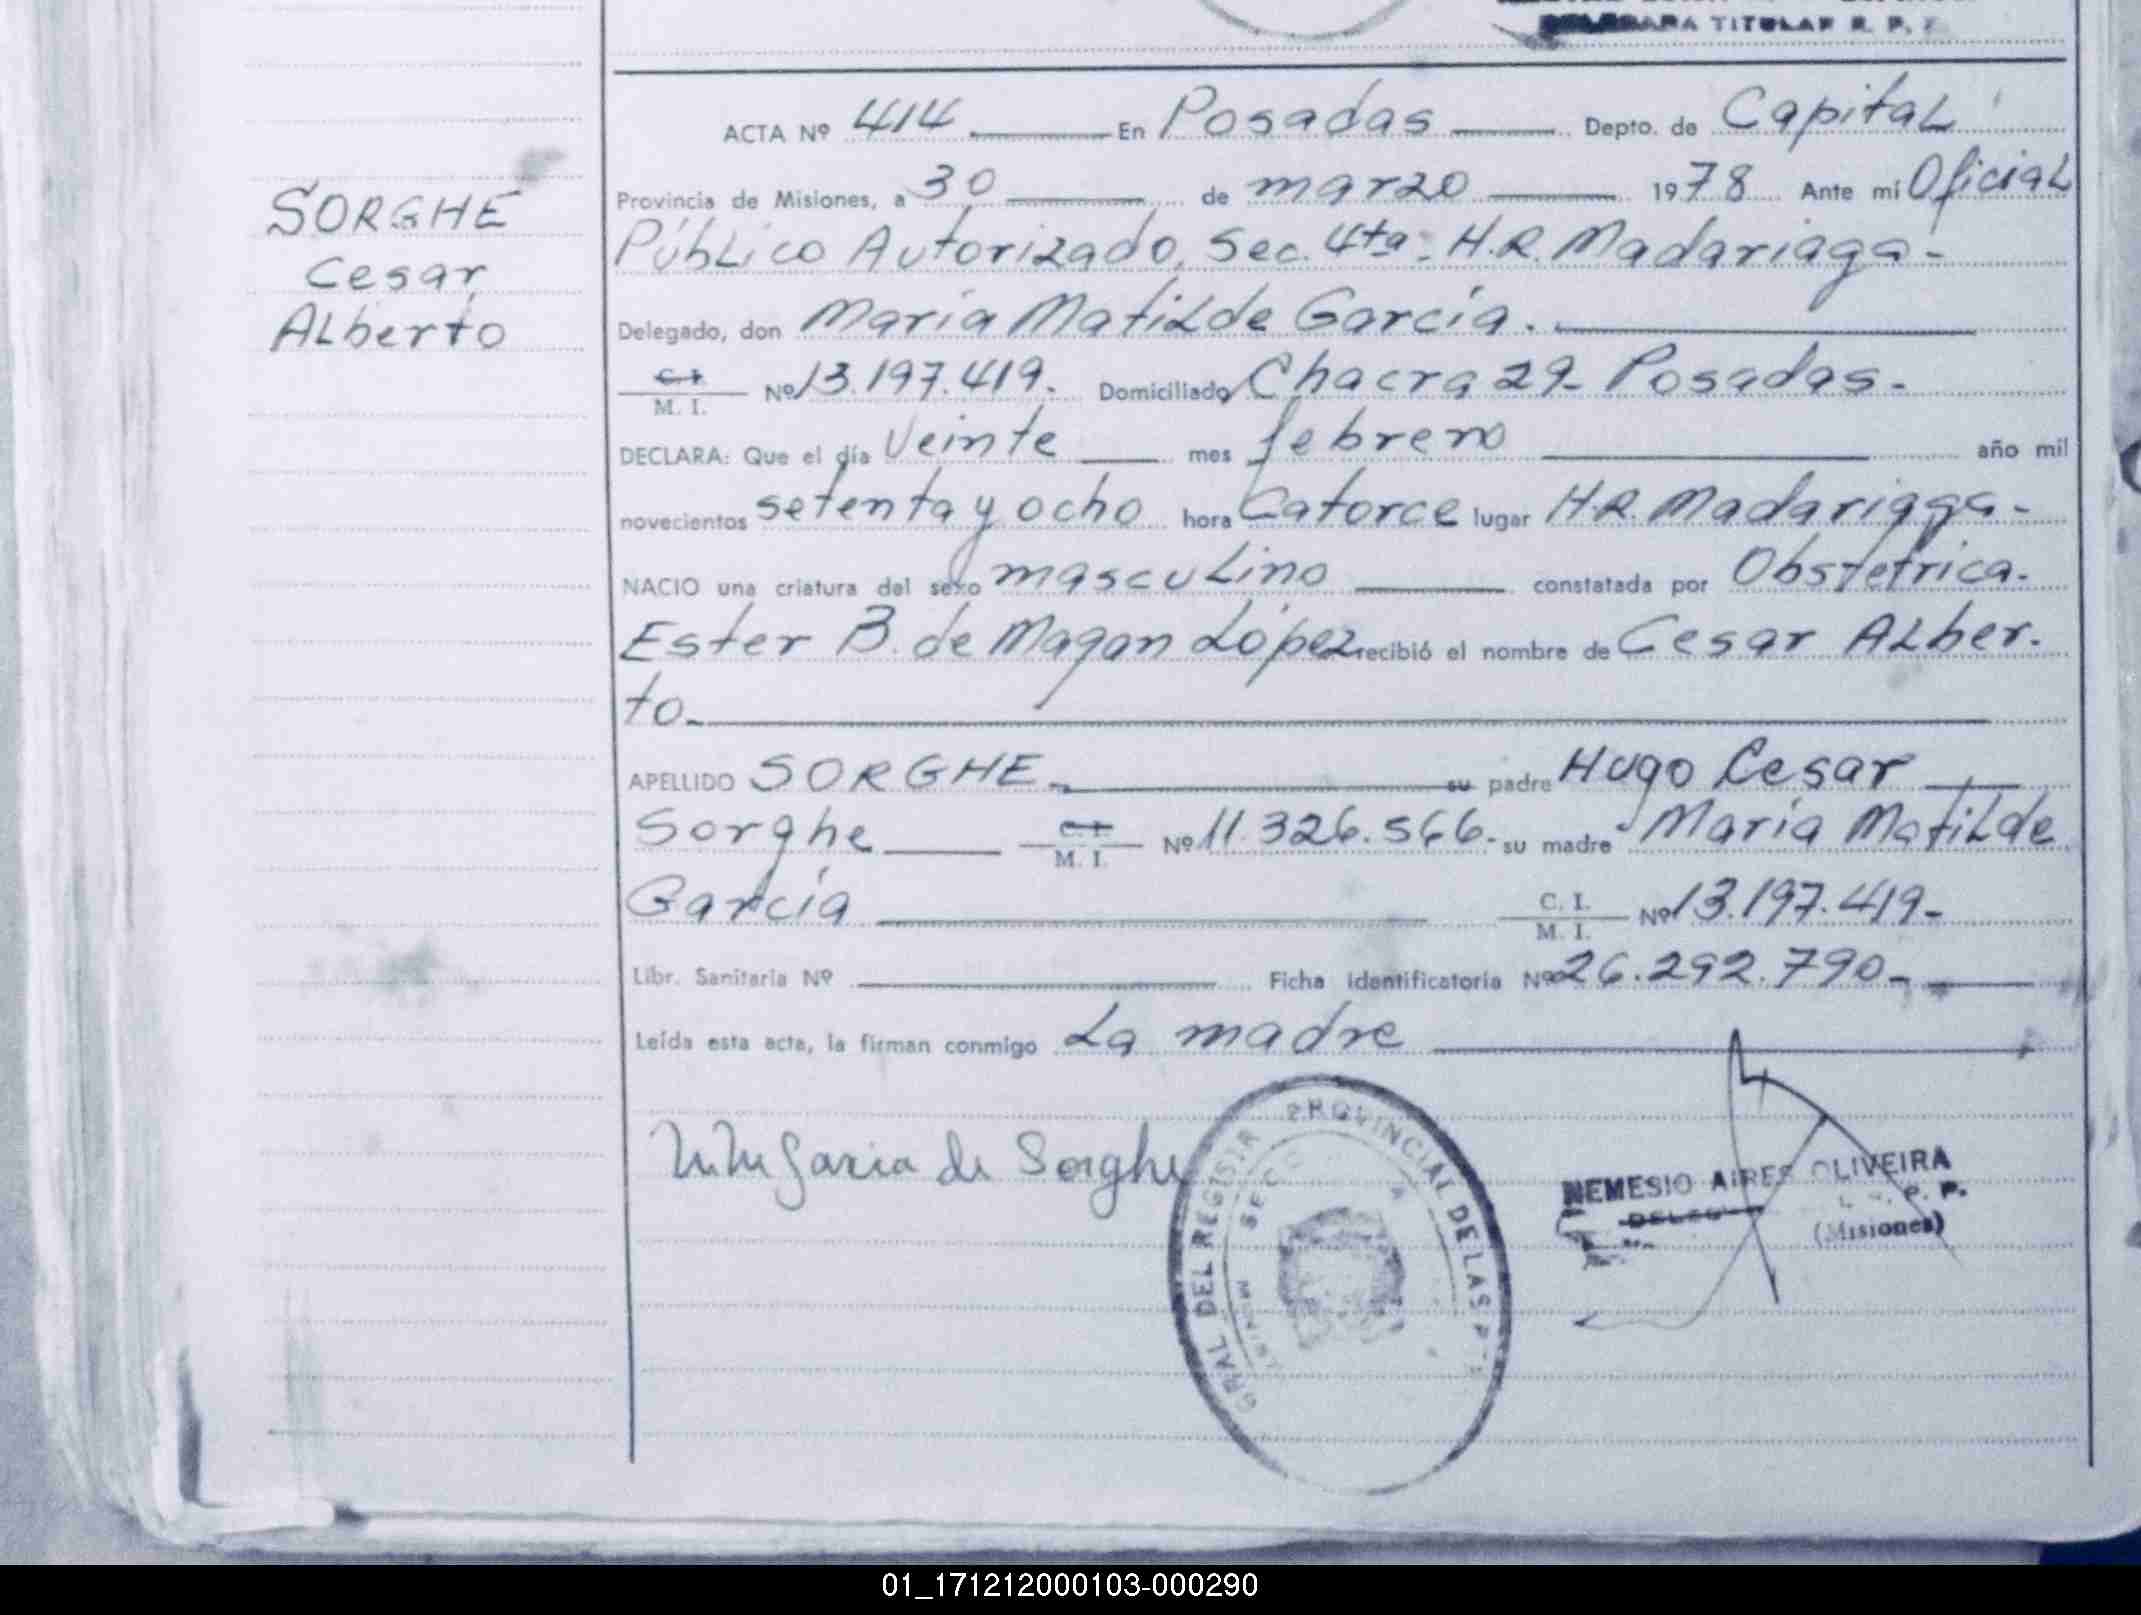 DELEGADA TITULAR R. P.
SORGHE
Cesar
Alberto
ACTA Nº 414 En Posadas Depto. de Capital
Provincia de Misiones, a 30 de marzo 1978 Ante mí Oficial
Público Autorizado, Sec. 4ta. H.R. Madariaga-
Delegado, don María Matilde García.
C.I. M. I. Nº 13.197.419. Domiciliado Chacra 29- Posadas-
DECLARA: Que el día Veinte mes febrero año mil
novecientos setenta y ocho hora Catorce lugar H.R. Madariaga-
NACIO una criatura del sexo masculino constatada por Obstetrica.
Ester B. de Magan López recibió el nombre de Cesar Alber-
to.
APELLIDO SORGHE su padre Hugo Cesar
Sorghe C.I. M. I. Nº 11.326.566- su madre María Matilde
García C. I. M. I. Nº 13.197.419-
Libr. Sanitaria Nº Ficha identificatoria Nº 26.292.790-
Leída esta acta, la firman conmigo La madre
García de Sorghe
GRAL DEL REGISTR PROVINCIAL DE LAS P
SECC
NEMESIO AIRES OLIVEIRA
P. P.
(Misiones)
01_171212000103-000290